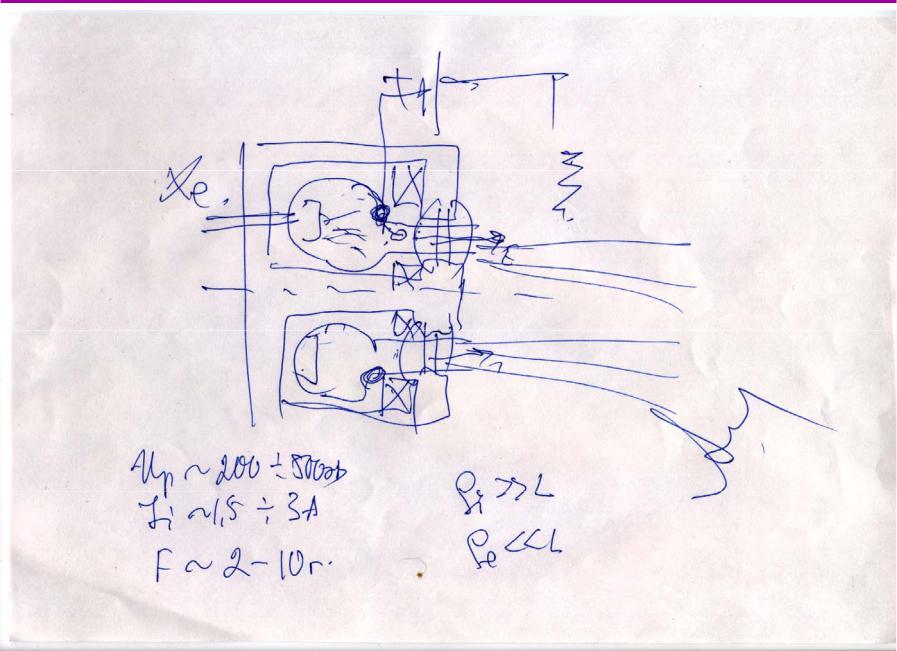 Xe.
E
Up ~ 200 ÷ 500 в
Ji ~ 1,5 ÷ 3A
F ~ 2 - 10 г.
ρi >> L
ρe << L